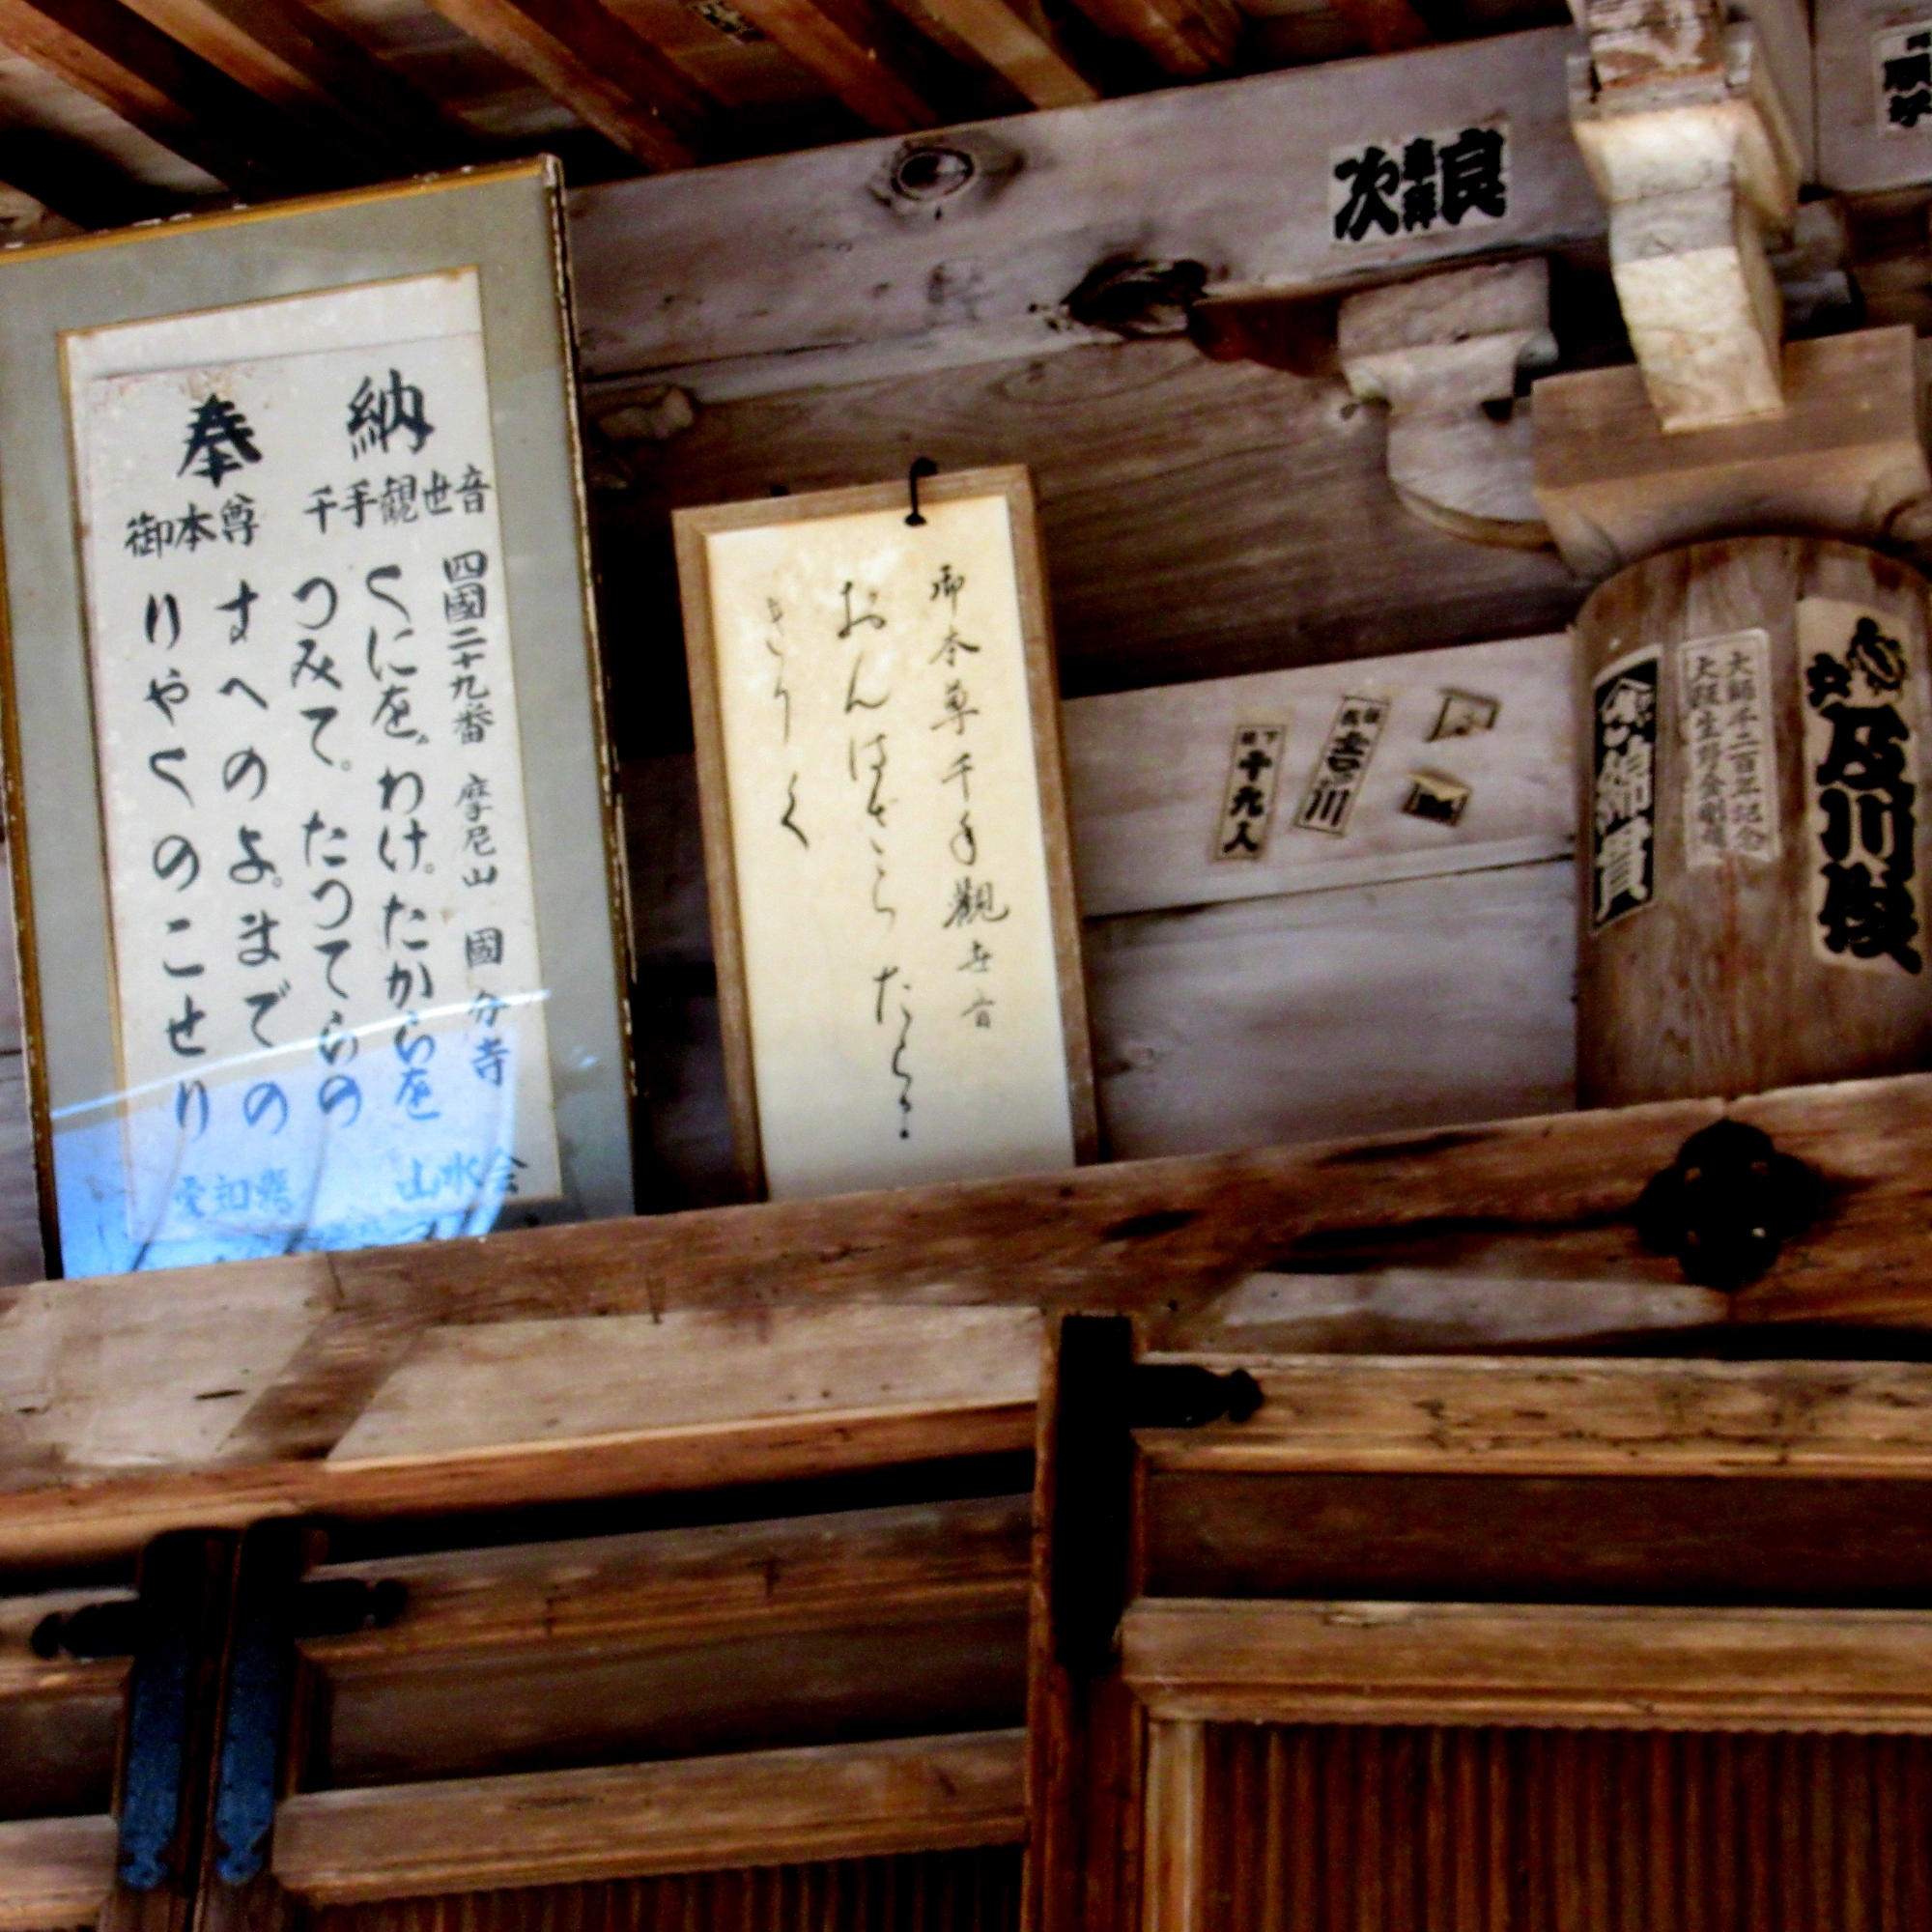 奉納
御本尊 千手観世音
四國二十九番 摩尼山 國分寺
くにを、わけ。たからを
つみて。たつてらの
すへのよ。までの
りやくのこせり
愛知縣 山水会
御本尊千手觀世音
おんばさら たらま
きりく
次 良
十九人
吉川
綿貫
大師千二百年記念
及川